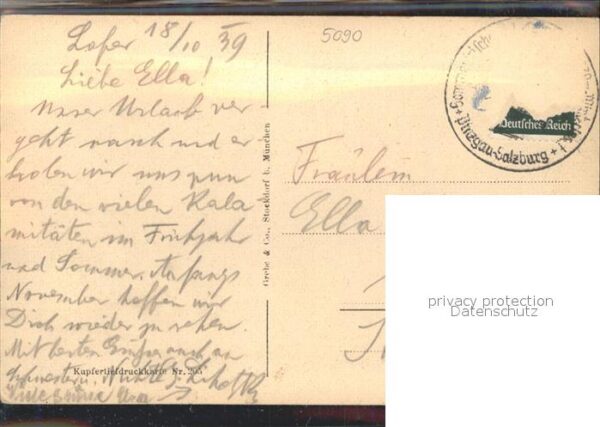 Lofer 18/10 39
5090
Liebe Ella!
Unser Urlaub ver-
geht rasch und er
holen wir uns nun
von den vielen Kala
mitäten im Frühjahr
und Sommer. Anfangs
November hoffen wir
Dich wieder zu sehen.
Mit besten Grüßen auch an
Schwestern,
Kupfertiefdruckkarte Nr. 265
Grebe & Co., Stockdorf b. München
Deutsches Reich
Pinzgau-Salzburg
Fräulein
Ella
privacy protection
Datenschutz